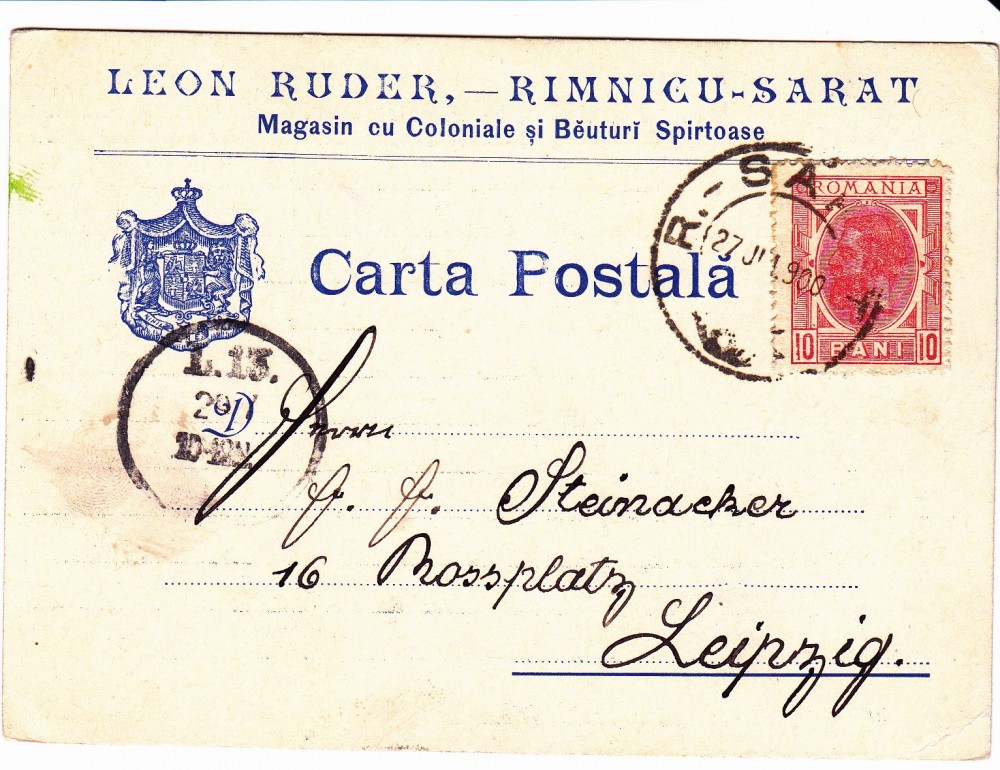 LEON RUDER,—RIMNICU-SARAT
Magasin cu Coloniale și Bĕuturĭ Spirtoase
R.-SA
27 JUL 900
ROMANIA
10 BANI 10
Carta Postală
L.13.
29
D
Herrn
F. F. Steinacker
16 Rossplatz
Leipzig.